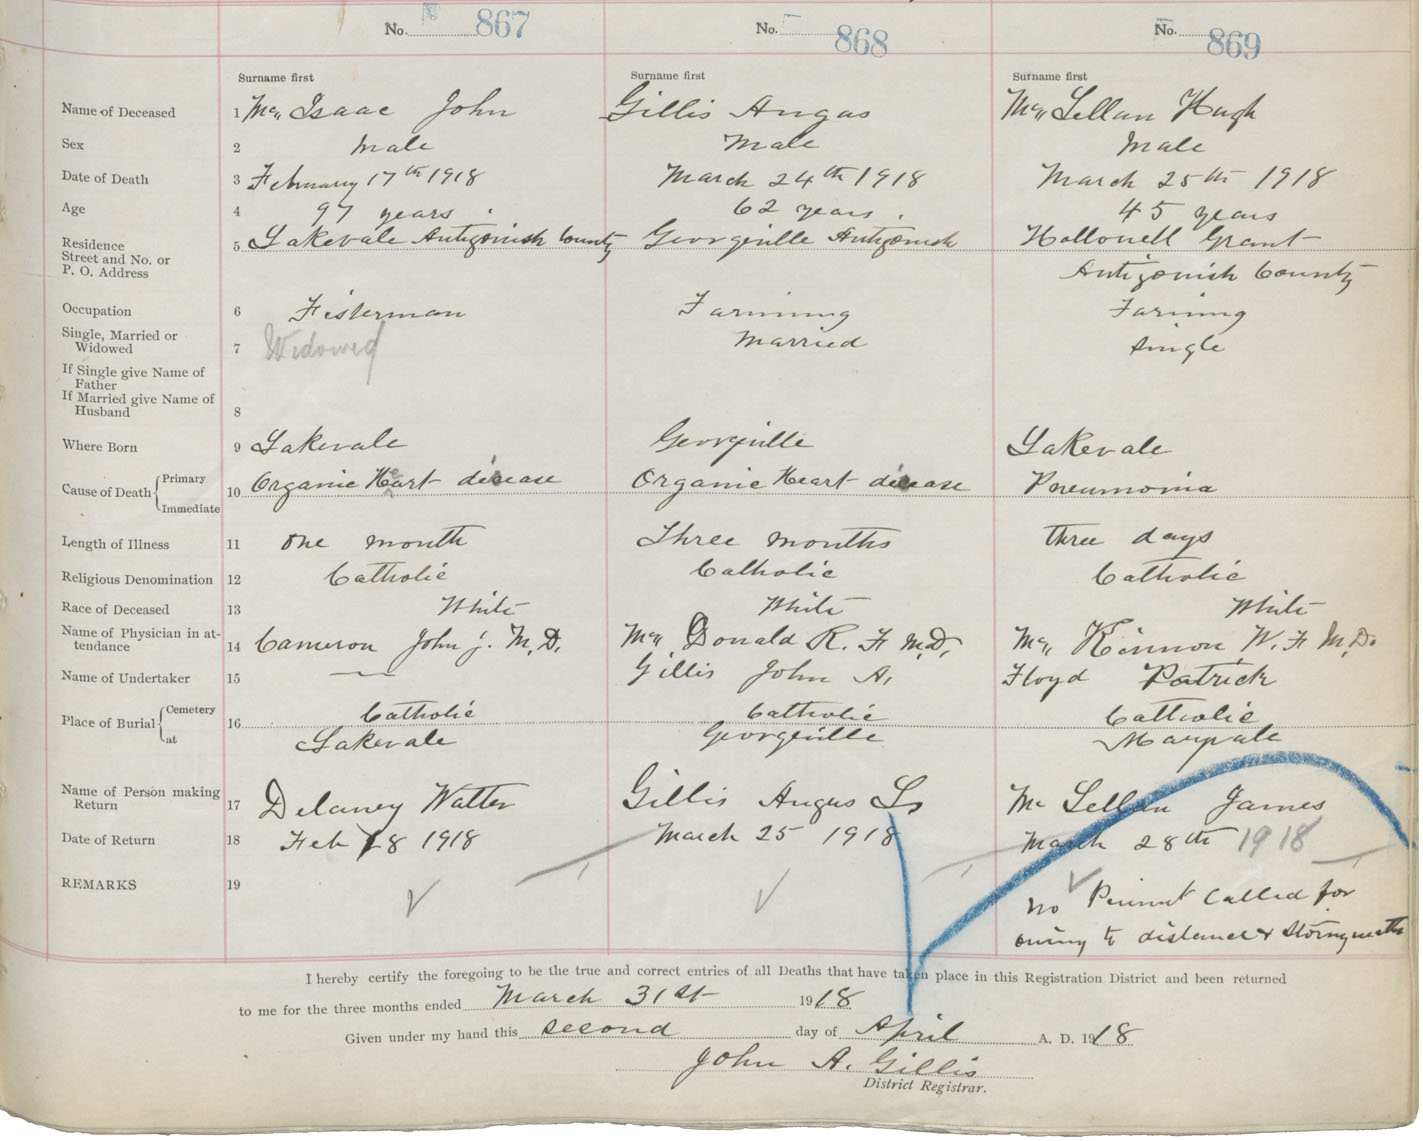 No. 867 No. 868 No. 869
Surname first Surname first Surname first
Name of Deceased 1 Mc Isaac John Gillis Angus Mc Lellan Hugh
Sex 2 Male Male Male
Date of Death 3 February 17th 1918 March 24th 1918 March 25th 1918
Age 4 97 years. 62 years. 45 years
Residence Street and No. or P. O. Address 5 Lakevale Antigonish County Georgeville Antigonish Hollowell Grant
Antigonish County
Occupation 6 Fisterman Farming Farming
Single, Married or Widowed 7 Widowed Married Single
If Single give Name of Father
If Married give Name of Husband 8
Where Born 9 Lakevale Georgeville Lakevale
Cause of Death Primary Immediate 10 Organic Heart disease Organic Heart disease Pneumonia
Length of Illness 11 One month Three months three days
Religious Denomination 12 Catholic Catholic Catholic
Race of Deceased 13 White White White
Name of Physician in attendance 14 Cameron John J. M.D. Mc Donald R. F M.D. Mc Kinnon W. F M.D.
Name of Undertaker 15 — Gillis John A. Floyd Patrick
Place of Burial Cemetery 16 Catholic Catholic Catholic
at Lakevale Georgeville Maryvale
Name of Person making Return 17 Delaney Walter Gillis Angus Ls Mc Lellan James
Date of Return 18 Feb 28 1918 March 25 1918 March 28th 1918
REMARKS 19 No called for
owing to distance + stormy
I hereby certify the foregoing to be the true and correct entries of all Deaths that have taken place in this Registration District and been returned
to me for the three months ended March 31st 1918
Given under my hand this second day of April A. D. 1918
John A. Gillis
District Registrar.